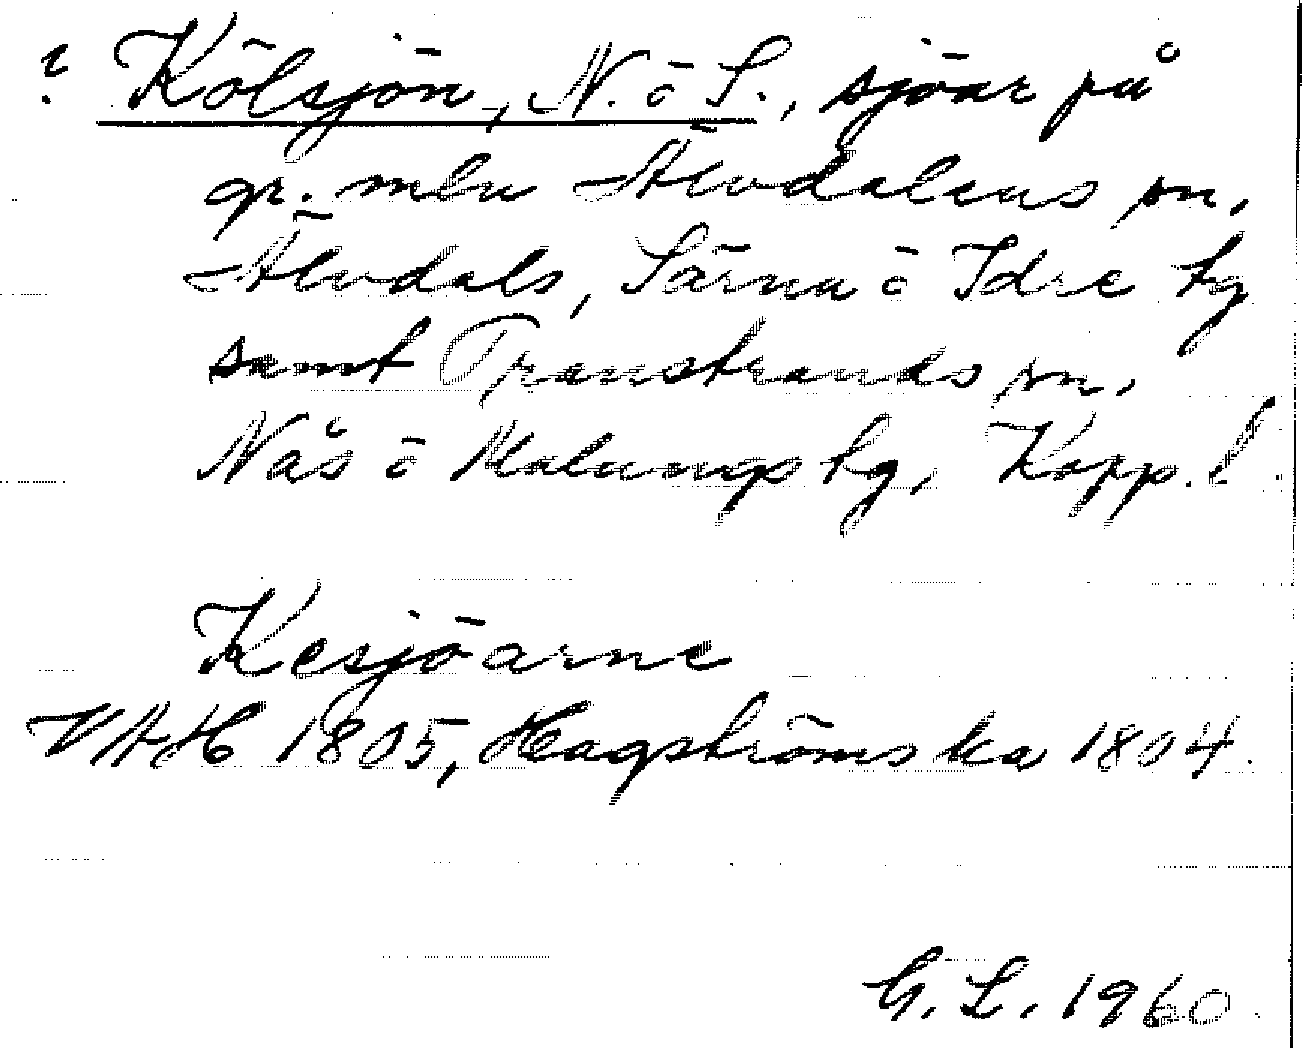 ? Kölsjön, N. o S., sjöar på
gr. mln Älvdalens sn,
Älvdals, Särna o Idre tg
samt Transtrands sn,
Nås o Malungs tg, Kopp. l.
Kesjöarne
VAH 1805, Hagströms ka 1804.
G. L. 1960.